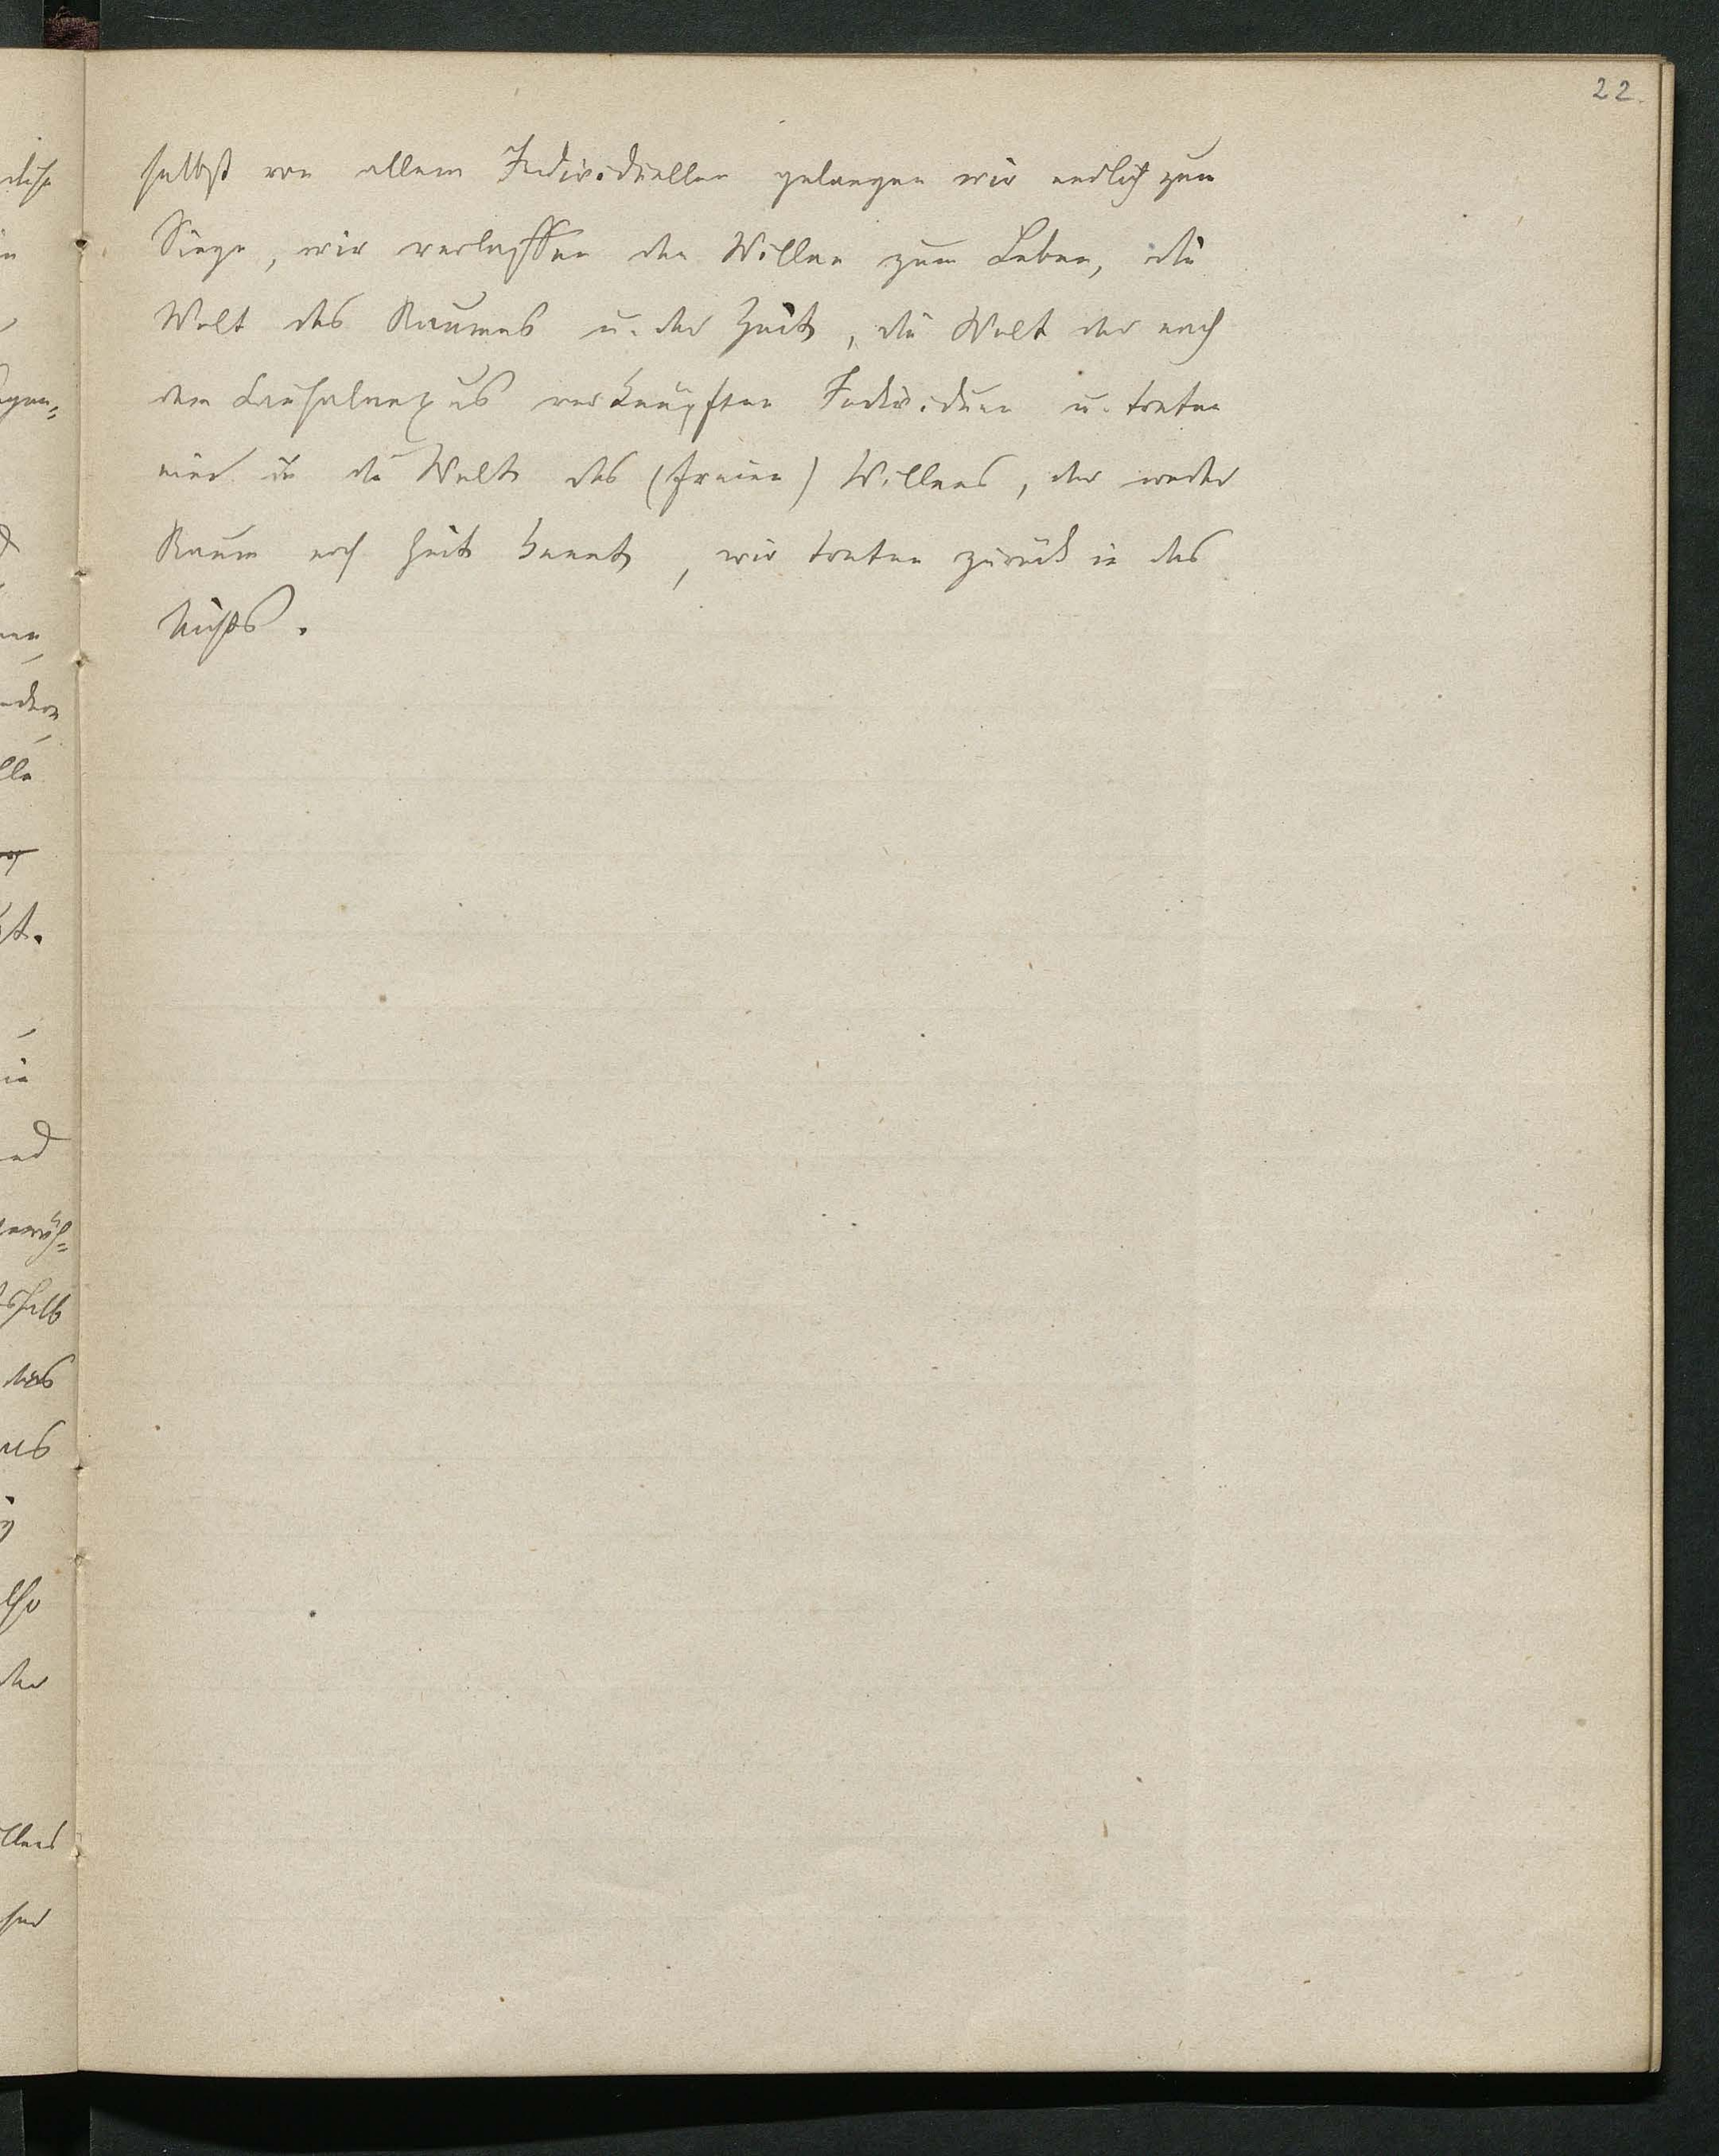 22.
selbst von allem Individuellen gelangen wir endlich zum
Siege, wir verlassen den Willen zum Leben, die
Welt des Raumes u. der Zeit, die Welt der nach
dem Causalnexus verknüpften Individuen u. treten
ein in die Welt des (freien) Willens, der weder
Raum noch Zeit kennt, wir treten zurück in das
Nichts.